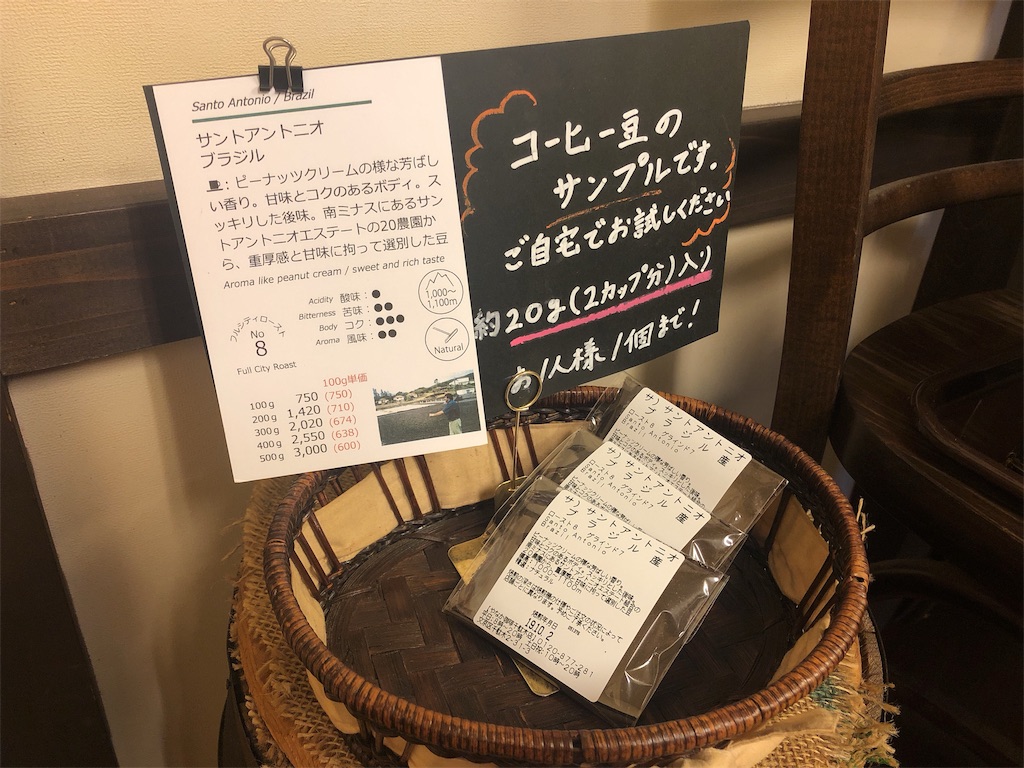 Santo Antonio / Brazil
サントアントニオ
ブラジル
:ピーナッツクリームの様な芳ばし
い香り。甘味とコクのあるボディ。ス
ッキリした後味。南ミナスにあるサン
トアントニオエステートの20農園か
ら、重厚感と甘味に拘って選別した豆
Aroma like peanut cream / sweet and rich taste
Acidity 酸味:●
Bitterness 苦味:●●
Body コク:●●●
Aroma 風味:●●
1,000～
1,100m
Natural
フルシティロースト
No
8
Full City Roast
100g単価
100g 750 (750)
200g 1,420 (710)
300g 2,020 (674)
400g 2,550 (638)
500g 3,000 (600)
コーヒー豆の
サンプルです。
ご自宅でお試しください
約20g(2カップ分)入り
お1人様1個まで!
サ)サントアントニオ
ブラジル 産
ロースト8 グラインド7
Santo Antonio
Brazil
サ)サントアントニオ
ブラジル 産
ロースト8 グラインド7
Santo Antonio
Brazil
サ)サントアントニオ
ブラジル 産
ロースト8 グラインド7
Santo Antonio
Brazil
ナチュラル
1910.2
0120-877-281